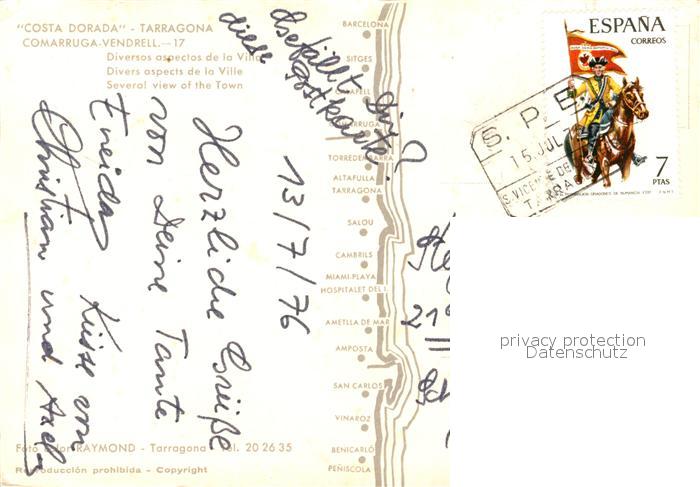 "COSTA DORADA" - TARRAGONA
COMARRUGA-VENDRELL.-17
Diversos aspectos de la Villa
Divers aspects de la Ville
Several view of the Town
Gefällt Dir
diese Postkarte?
13/7/76
Herzliche Grüße
von Deine Tante
Eneida
Küsse von
Christian und Axel
BARCELONA
SITGES
CALAFELL
COMARRUGA
TORREDEMBARRA
ALTAFULLA
TARRAGONA
SALOU
CAMBRILS
MIAMI-PLAYA
HOSPITALET DEL I.
AMETLLA DE MAR
AMPOSTA
SAN CARLOS
VINAROZ
BENICARLÓ
PEÑISCOLA
Foto color RAYMOND - Tarragona - Tel. 20 26 35
Reproducción prohibida - Copyright
ESPAÑA
CORREOS
7
PTAS
F.N.M.T.
S. P. E.
15 JUL
S. VICENTE DE
TARRAG
21
privacy protection
Datenschutz